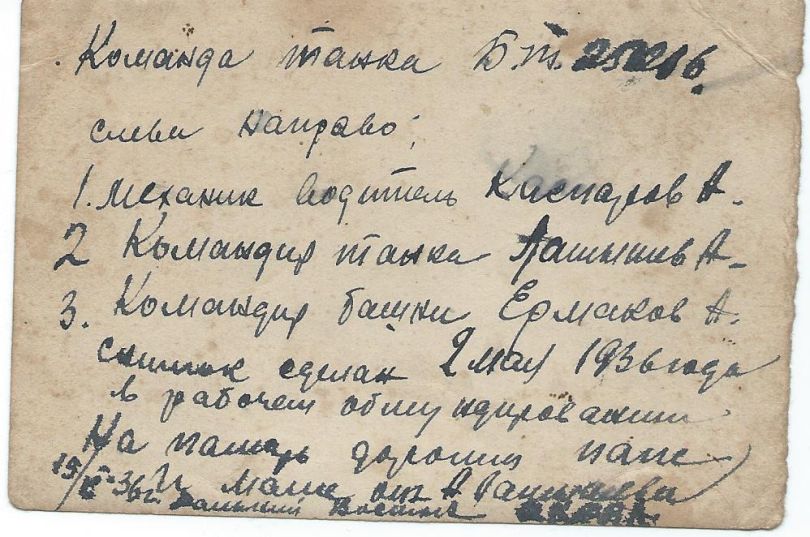 Команда танка Б.т.
слева направо;
1. механик водитель Каспаров А.
2 Командир танка А.
3. Командир башни Ермаков А.
снимок сделан 2 мая 1936 года
в рабочем обмундировании
На память дорогим папе
и маме от А.
15/ 36г. Дальний Восток